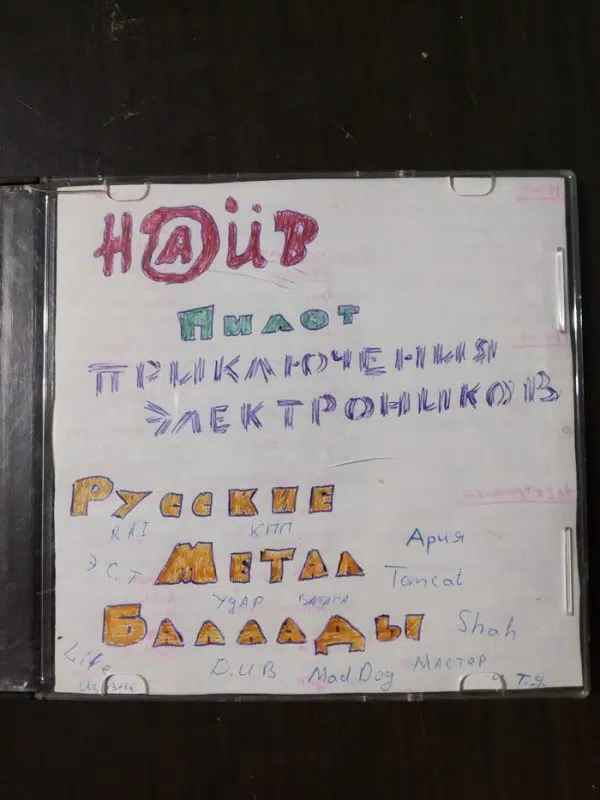 НАЇВ
Пилот
ПРИКЛЮЧЕНИЯ
ЭЛЕКТРОНИКОВ
Русские
RAI КПП Ария
Э.С.Т. Метал Tomcat
Удар ВАТАГА
Баллады Shah
Life D.U.B. Mad Dog Мастер
и т.д.